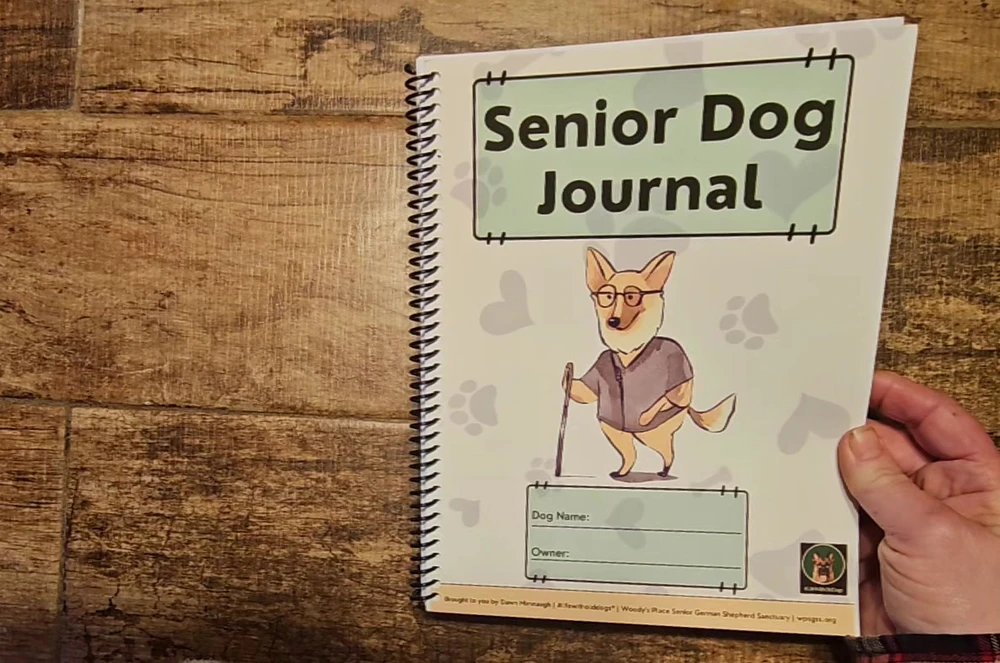 Senior Dog
Journal
Dog Name:
Owner:
#LifeWithOldDogs
Brought to you by Dawn Mimnaugh | #Lifewitholddogs® | Woody's Place Senior German Shepherd Sanctuary | wpsgss.org